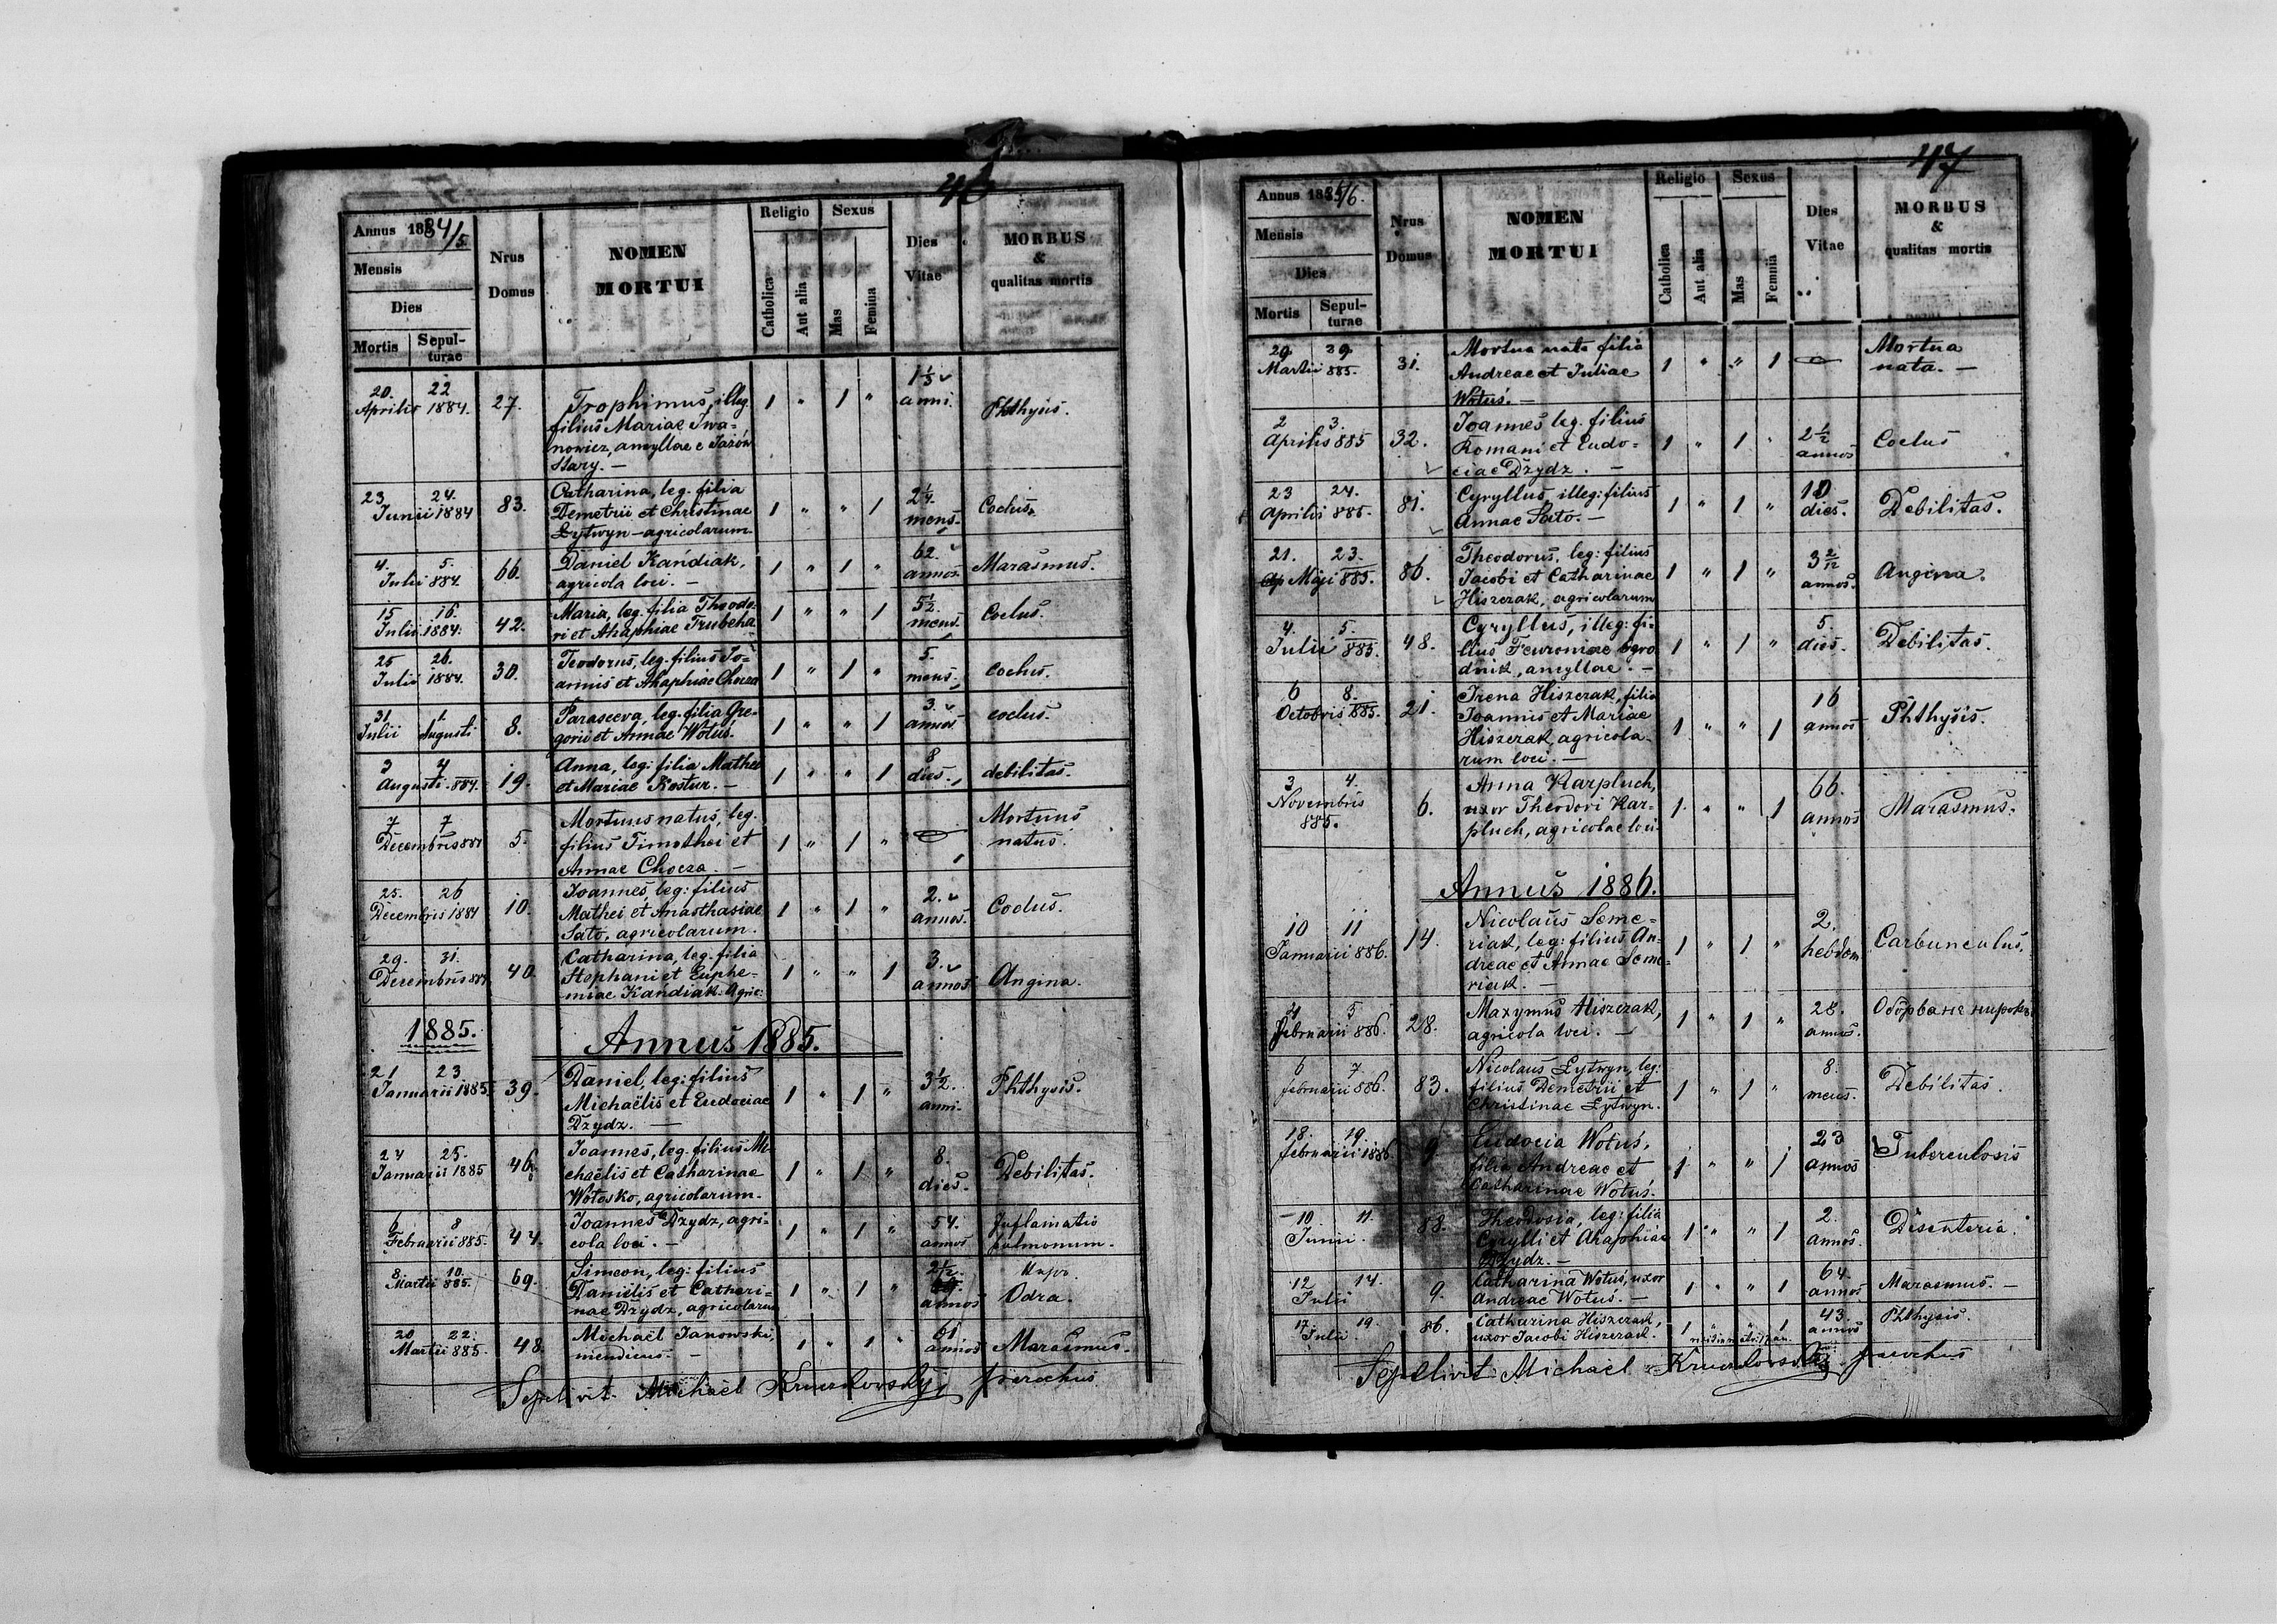 46
Annus 1884/5
Mensis
Dies
Mortis Sepulturae
Nrus Domus
NOMEN MORTUI
Religio
Catholica Aut alia
Sexus
Mas Femina
Dies Vitae
MORBUS & qualitas mortis
20. 22 1 1/3
Aprilis 1884. 27. Trophimus, illeg. 1 " 1 " anni. Phthysis.
filius Mariae Iwa-
nowicz, amyllae e Jazów
Stary. —
23 24. Catharina, leg. filia 2 1/4
Junii 1884 83. Demetrii et Christinae 1 " " 1 mens. Coclus.
Łytwyn - agricolarum
4. 5. Daniel Kańdiak, 62.
Julii 884. 66. agricola loci. — 1 " 1 " annos. Marasmus.
15 16. Maria, leg. filia Theodo- 5 1/2
Julii 1884. 42. ri et Ahaphiae Trubcha 1 " " 1 mens. Coclus.
25 26. Teodorus, leg. filius Jo- 5.
Julii 1884. 30. annis et Ahaphiae Chocza 1 " 1 " mens. coclus.
31 1 Parasceva, leg. filia Gre- 3.
Julii Augusti 8. gorii et Annae Wotuś. 1 " " 1 annos. coclus.
3 4 Anna, leg: filia Mathei 8
Augusti 884. 19. et Mariae Kostur. — 1 " " 1 dies. debilitas.
7 7 Mortuus natus, leg. Mortuus
Decembris 884 5. filius Timothei et 1 " 1 " natus.
Annae Chocza. —
25. 26 Joannes, leg: filius 2.
Decembris 1884 10. Mathei et Anasthasiae 1 " 1 " annos. Coclus.
Sato, agricolarum.
29. 31. Catharina, leg. filia 3.
Decembris 884 40. Stephani et Euphe- 1 " " 1 annos. Angina.
miae Kańdiak. Agric:
1885. Annus 1885.
21 23. Daniel, leg: filius 3 1/2.
Januarii 1885 39. Michaëlis et Eudociae 1 " 1 " anni. Phthysis.
Dzydz. —
24 25. Joannes, leg. filius Mi- 8.
Januarii 1885 46. chaëlis et Catharinae 1 " 1 " dies. Debilitas.
Wotosko, agricolarum.
6 8 Joannes Dzydz, agri- 54. Inflamatio
Februarii 885. 44. cola loci. — 1 " 1 " annos pulmonum.
8. 10. Simeon, leg: filius 2 1/2.
Martii 885. 69. Daniëlis et Cathari- 1 " 1 " annos Odra.
nae Dzydz, agricolarum
20 22. Michaël Janowski, 61
Martii 885. 48. mendicus. — 1 " 1 " annos Marasmus.
Sepelivit Michaël Kruszkovskyj parochus
47
Annus 1885/6.
Mensis
Dies
Mortis Sepulturae
Nrus Domus
NOMEN MORTUI
Religio
Catholica Aut alia
Sexus
Mas Femnia
Dies Vitae
MORBUS & qualitas mortis
29 29. Mortua nata filia Mortua
Martii 885. 31. Andreae et Juliae 1 " " 1 nata. —
Wotuś. —
2 3. Joannes leg. filius 2 1/2
Aprilis 885 32. Romani et Eudo- 1 " 1 " annos Coclus
ciae Dzydz. —
23 24. Cyryllus, illeg: filius 10
Aprilis 885. 81. Annae Sato. — 1 " 1 " dies. Debilitas.
21. 23. Theodorus, leg: filius 3 2/12
Maji 885. 86. Jacobi et Catharinae 1 " 1 " annos. Angina.
Hiszczak, agricolarum
4. 5. Cyryllus, illeg: fi- 5.
Julii 885. 48. lius Fewroniae Ogro 1 " 1 " dies. Debilitas.
dnik, amyllae. —
6 8. Irena Hiszczak, filia 16
Octobris 885. 21. Joannis et Mariae 1 " " 1 annos Phthysis.
Hiszczak, agricola-
rum loci. —
3 4. Anna Karpluch, 66.
Novembris 6. uxor Theodori Kar- 1 " " 1 annos Marasmus.
885. pluch, agricolae loci
Annus 1886.
10 11 Nicolaus Seme- 2.
Januarii 886. 14. riak, leg: filius An- 1 " 1 " hebdom Carbunculus.
dreae et Annae Seme-
riak. —
4 5 Maxymus Hiszczak, 28.
Februarii 886. 28. agricola loci. — 1 " 1 " annos.
6 7 Nicolaus Łytwyn, leg: 8.
Februarii 886. 83. filius Demetrii et 1 " 1 " mens. Debilitas.
Christinae Łytwyn.
18. 19 Eudocia Wotuś, 23
Februarii 1886 9. filia Andreae et 1 " " 1 annos Tuberculosis
Catharinae Wotuś.
10. 11. Theodosia, leg: filia 2.
Junii. 88. Cyrylli et Ahaphiae 1 " " 1 annos. Disenteria.
Dzydz. —
12 14. Catharina Wotuś, uxor 64.
Julii 9. Andreae Wotuś. — 1 " " 1 annos Marasmus. —
17. 19. Catharina Hiszczak, 43.
Julii 86. uxor Jacobi Hiszczak. 1 " " 1 annos Phthysis.
Sepelivit Michaël Kruszkovskyj parochus